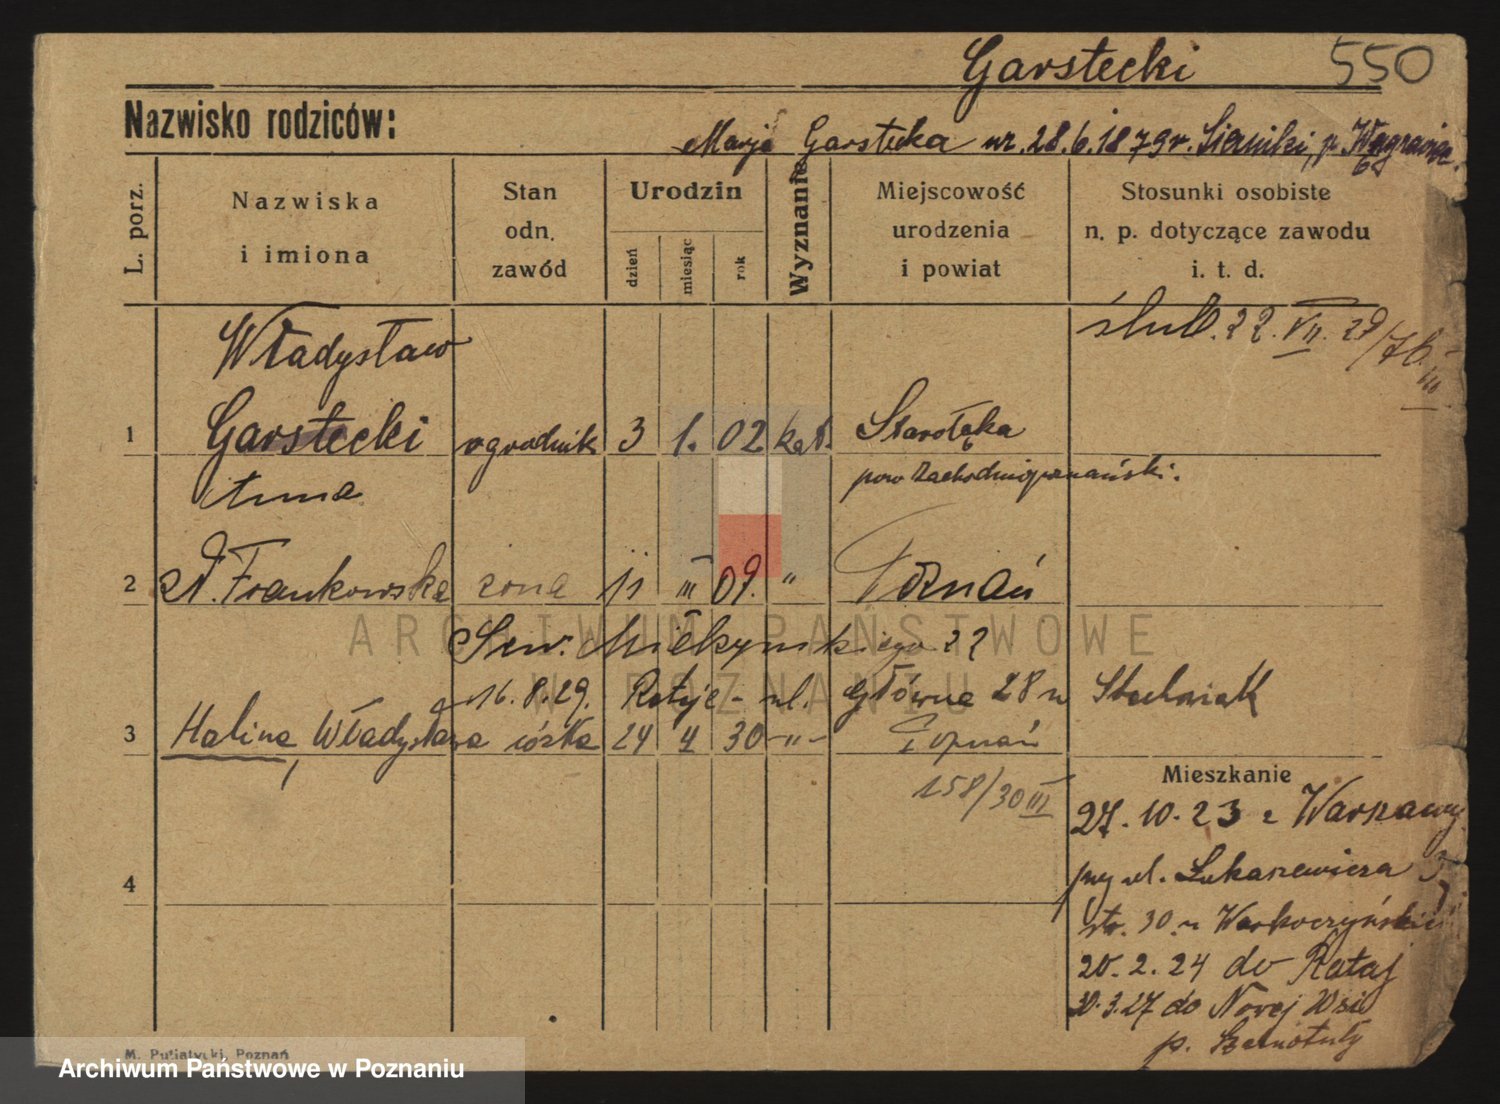 Garstecki 550
Nazwisko rodziców:
Marja Garstecka ur. 28.6.1879r. Sienniki, p. Wągrowiec
L. porz.
Nazwiska i imiona
Stan odn. zawód
Urodzin
dzień
miesiąc
rok
Wyznanie
Miejscowość urodzenia i powiat
Stosunki osobiste n. p. dotyczące zawodu i. t. d.
ślub. 22. VII. 29/76 III
Władysław
1 Garstecki ogrodnik 3 1. 02 kat. Starołęka
Anna pow Zachodniopoznański.
2 z d. Frankowska żona 11 III 09. " Poznań
Sew. Mielżyńskiego 22
16.8.29. Rataje - ul. Główna 28 u Stachowiak
3 Halina, Władysława córka 24 4 30 -"- Poznań
158/30 III
Mieszkanie
27. 10. 23 z Warszawy
przy ul. Łukaszewicza
str. 30 u Warkoczyński
4
20. 2. 24 do Rataj
30.3.27 do Nowej Wsi
p. Szamotuły
M. Putiatycki, Poznań
ARCHIWUM PAŃSTWOWE
W POZNANIU
Archiwum Państwowe w Poznaniu